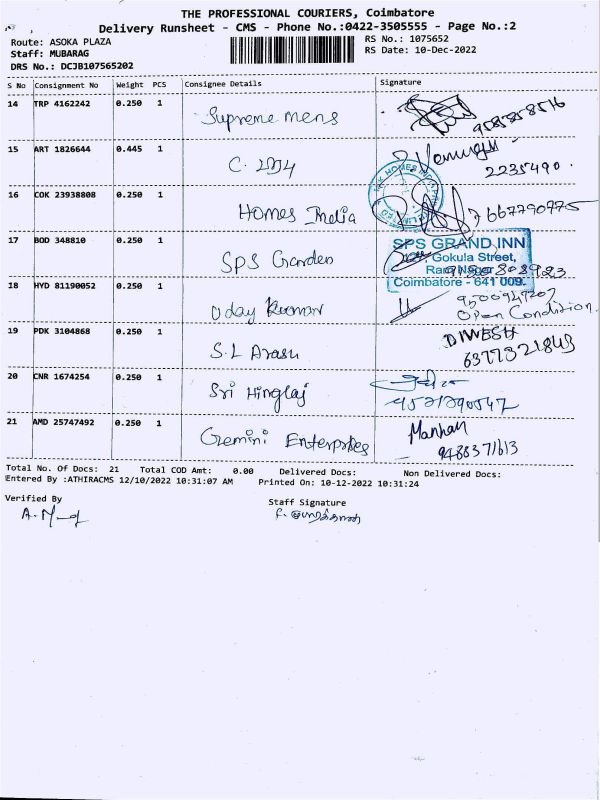 THE PROFESSIONAL COURIERS, Coimbatore
Delivery Runsheet - CMS - Phone No.:0422-3505555 - Page No.:2
Route: ASOKA PLAZA
RS No.: 1075652
Staff: MUBARAG
RS Date: 10-Dec-2022
DRS No.: DCJB107565202
S No Consignment No Weight PCS Consignee Details Signature
14 TRP 4162242 0.250 1 Supreme mens
9585858516
15 ART 1826644 0.445 1
2235490.
16 COK 23938808 0.250 1 Homes India 7667790775
17 BOD 348810 0.250 1 SPS Garden
SPS GRAND INN
Gokula Street,
Ram Nagar
Coimbatore - 641 009.
18 HYD 81190052 0.250 1 Uday Kumar
9500947207
Open Condition.
19 PDK 3104868 0.250 1 S.L Arasu DINESH
6377321843
20 CNR 1674254 0.250 1 Sri Hinglaj
21 AMD 25747492 0.250 1 Gemini Enterprises
9488371613
Total No. Of Docs: 21 Total COD Amt: 0.00 Delivered Docs: Non Delivered Docs:
Entered By :ATHIRACMS 12/10/2022 10:31:07 AM Printed On: 10-12-2022 10:31:24
Verified By
Staff Signature